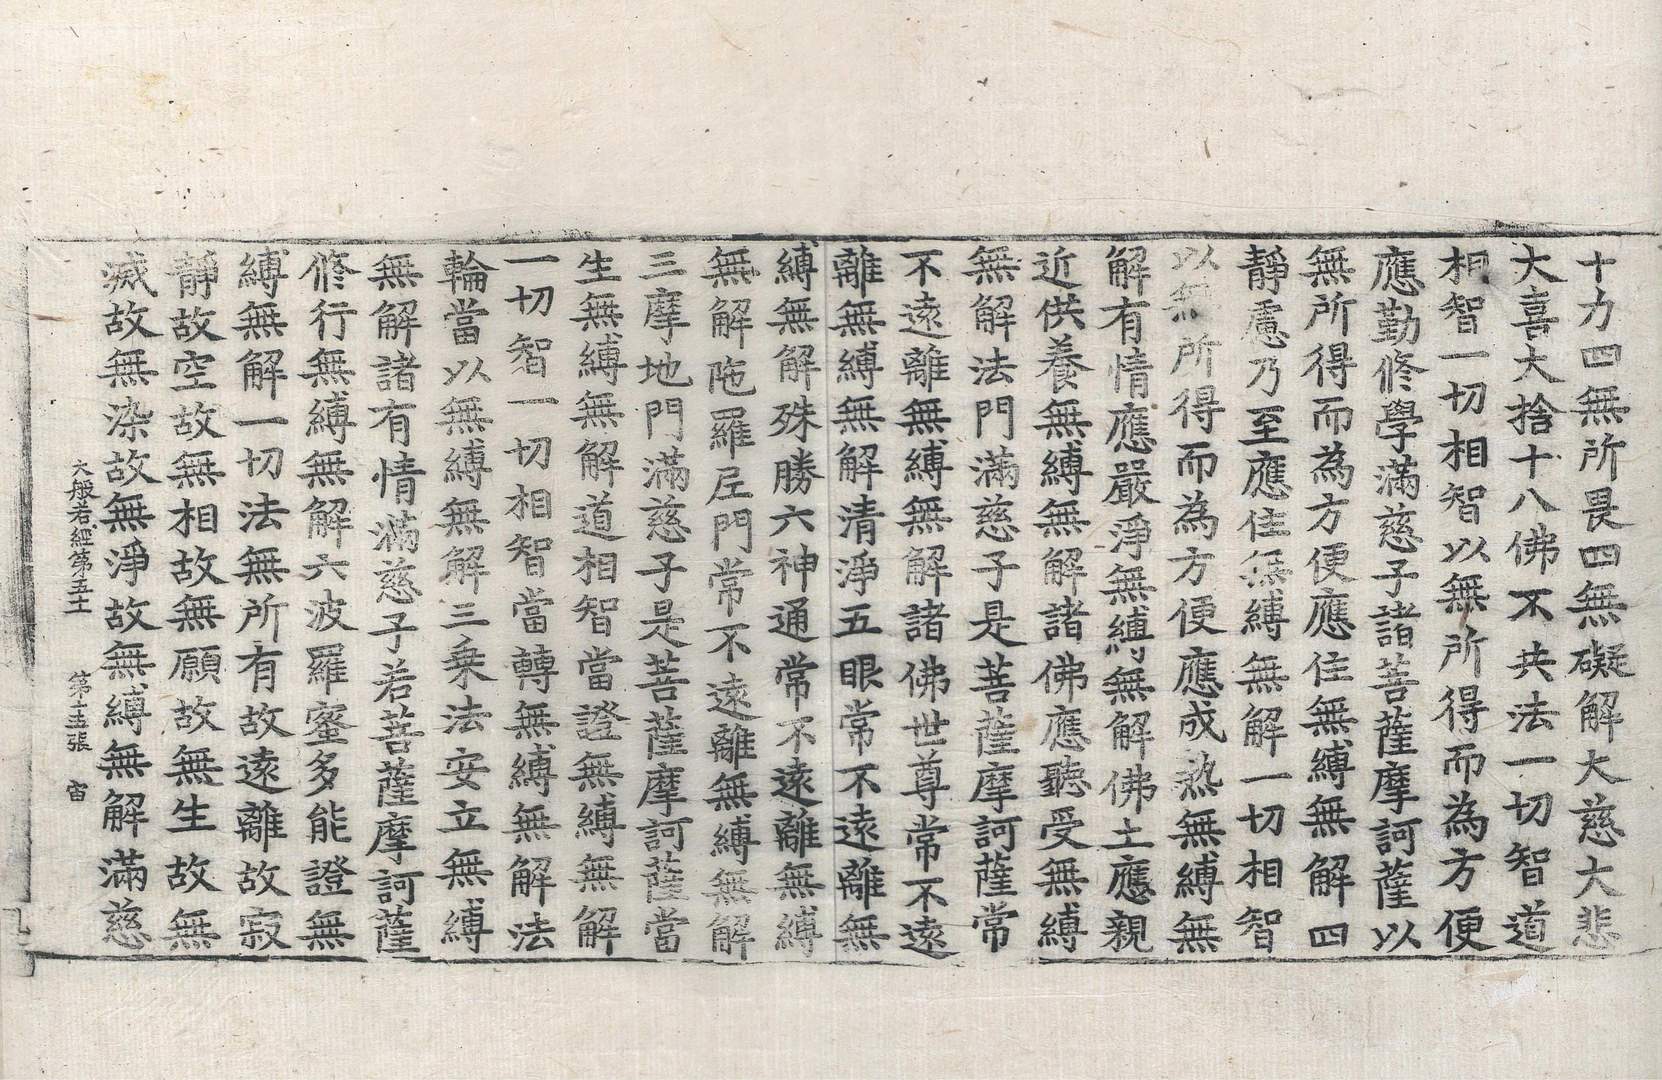 十力四無所畏四無礙解大慈大悲
大喜大捨十八佛不共法一切智道
相智一切相智以無所得而為方便
應勤修學滿慈子諸菩薩摩訶薩以
無所得而為方便應住無縛無解四
靜慮乃至應住無縛無解一切相智
以無所得而為方便應成熟無縛無
解有情應嚴淨無縛無解佛土應親
近供養無縛無解諸佛應聽受無縛
無解法門滿慈子是菩薩摩訶薩常
不遠離無縛無解諸佛世尊常不遠
離無縛無解清淨五眼常不遠離無
縛無解殊勝六神通常不遠離無縛
無解陁羅尼門常不遠離無縛無解
三摩地門滿慈子是菩薩摩訶薩當
生無縛無解道相智當證無縛無解
一切智一切相智當轉無縛無解法
輪當以無縛無解三乗法安立無縛
無解諸有情滿慈子若菩薩摩訶薩
修行無縛無解六波羅蜜多能證無
縛無解一切法無所有故遠離故寂
靜故空故無相故無願故無生故無
滅故無染故無淨故無縛無解滿慈
大般若經第五十一　第十五張　宙